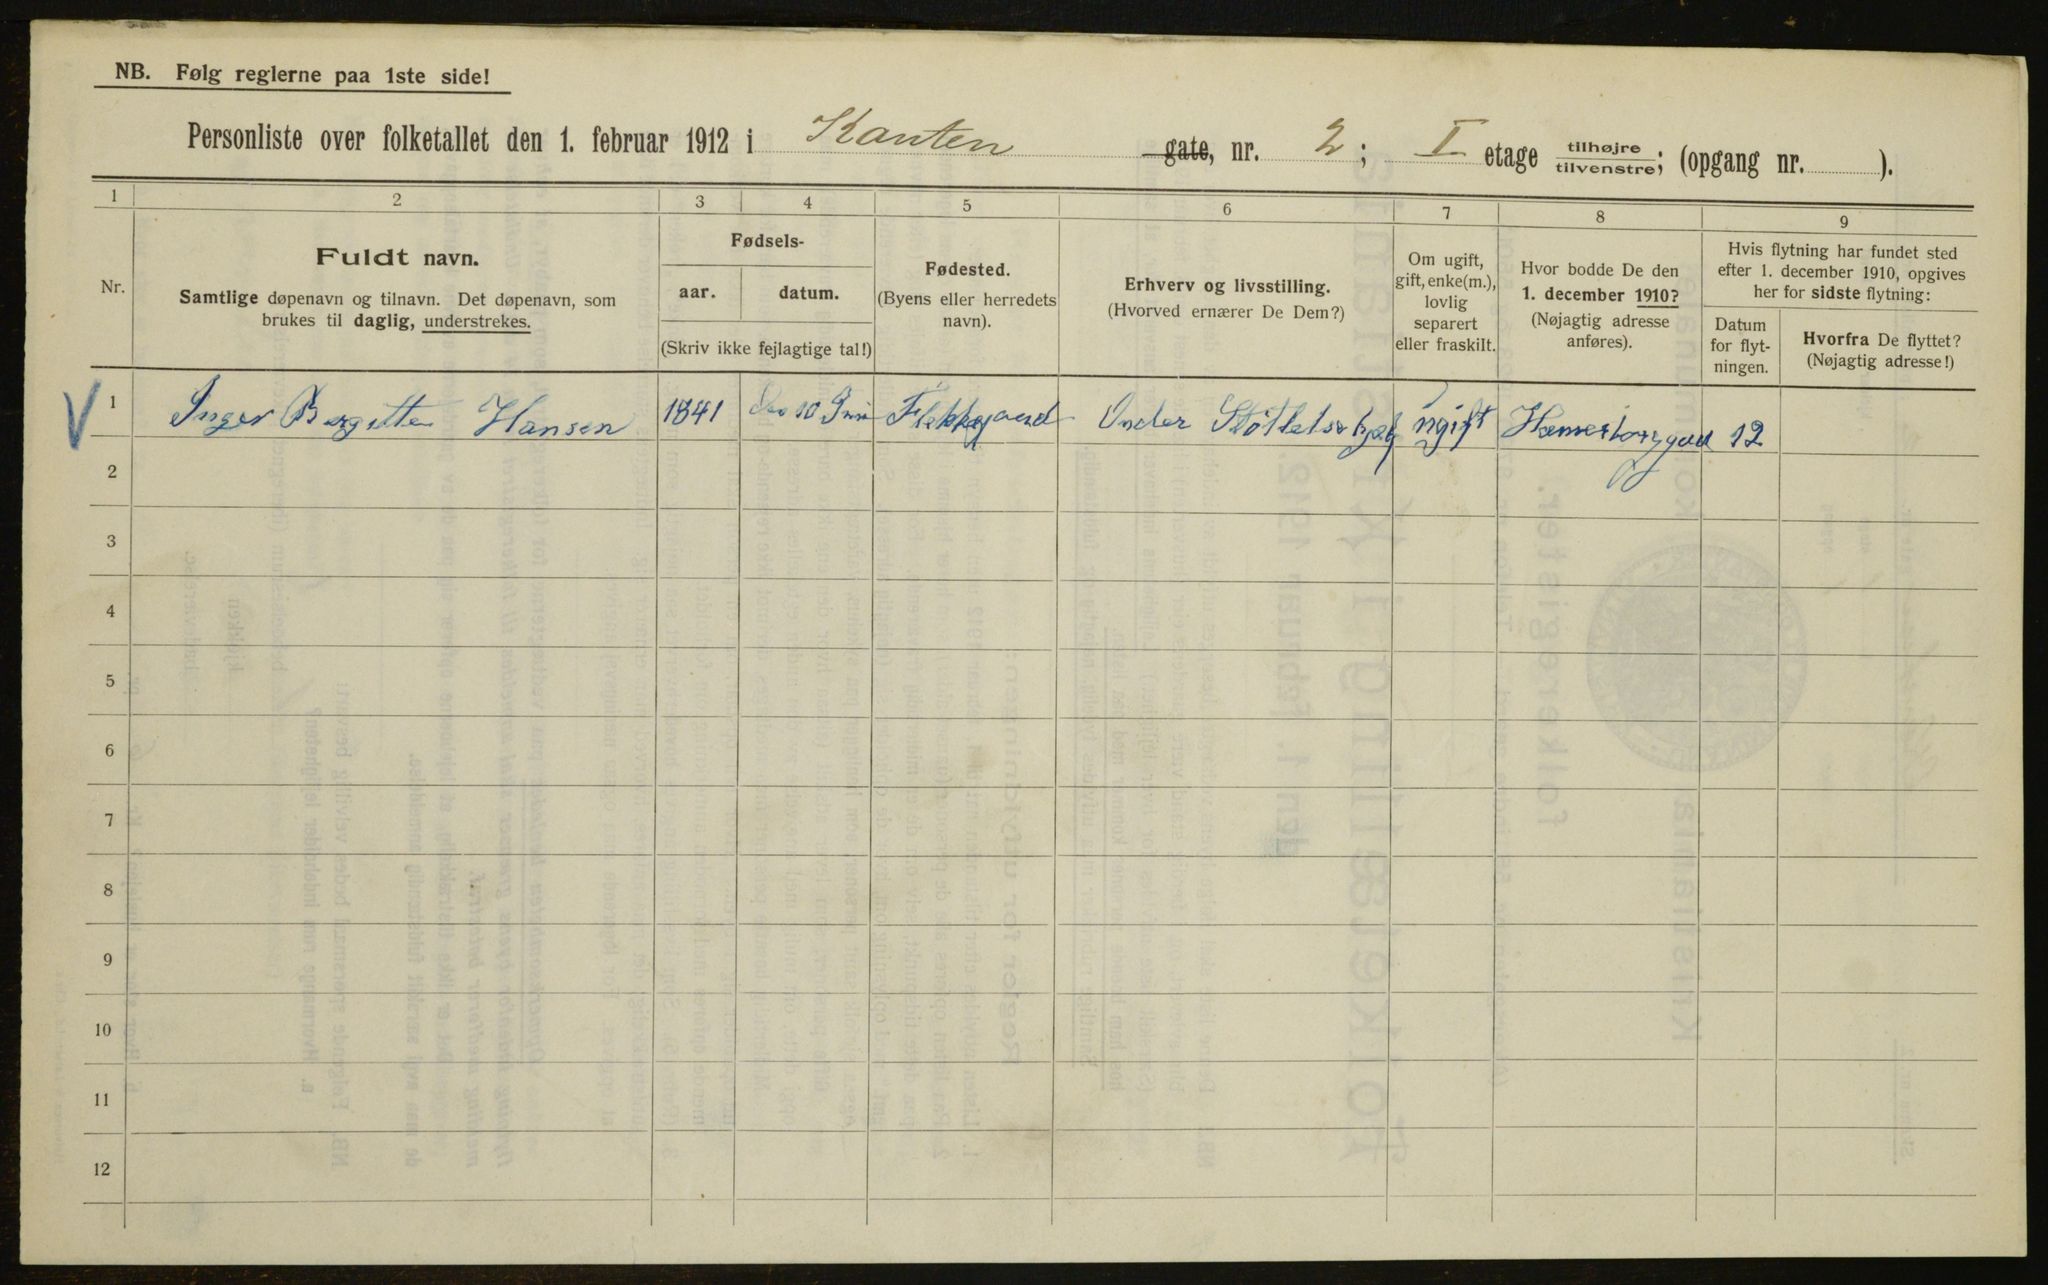 NB. Følg reglerne paa 1ste side!
Personliste over folketallet den 1. februar 1912 i Kanten gate, nr. 2; I etage tilhøjre tilvenstre; (opgang nr. ).
1 2 3 4 5 6 7 8 9
Nr.
Fuldt navn.
Samtlige døpenavn og tilnavn. Det døpenavn, som
brukes til daglig, understrekes.
Fødsels-
aar. datum.
(Skriv ikke fejlagtige tal!)
Fødested.
(Byens eller herredets
navn).
Erhverv og livsstilling.
(Hvorved ernærer De Dem?)
Om ugift,
gift, enke(m.),
lovlig
separert
eller fraskilt.
Hvor bodde De den
1. december 1910?
(Nøjagtig adresse
anføres).
Hvis flytning har fundet sted
efter 1. december 1910, opgives
her for sidste flytning:
Datum
for flyt-
ningen.
Hvorfra De flyttet?
(Nøjagtig adresse!)
V 1 Inger Bergitte Hansen 1841 10 Flekkegaard Under ugift 12
2
3
4
5
6
7
8
9
10
11
12